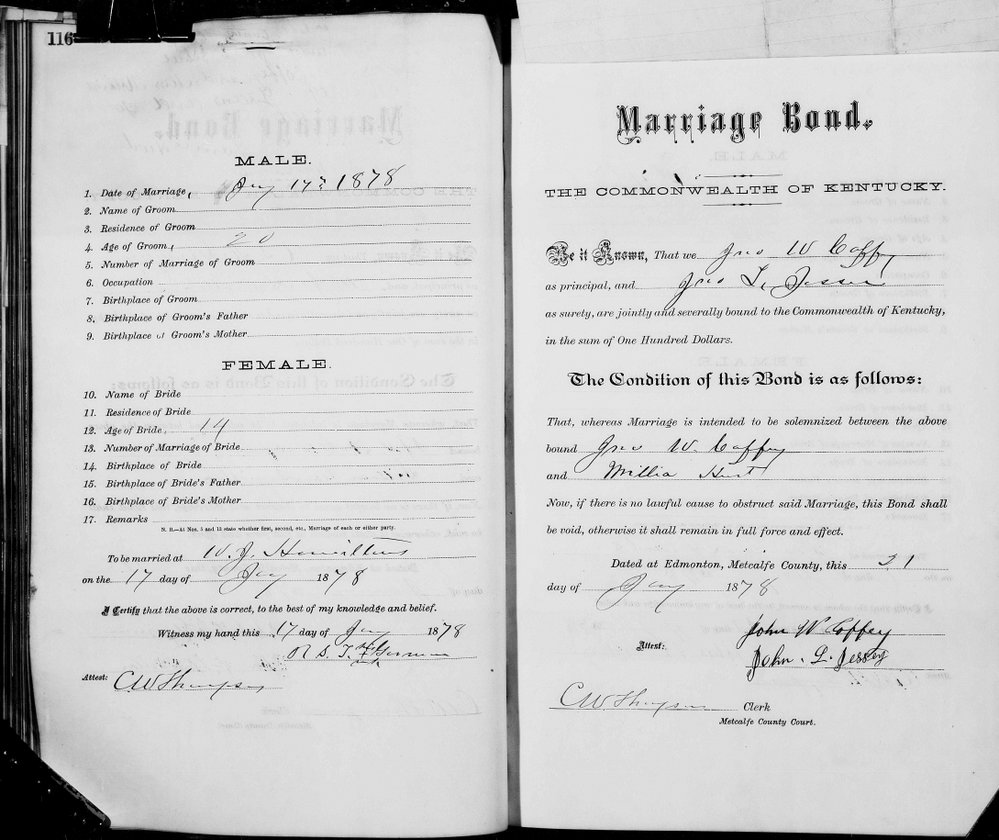 116
MALE.
1. Date of Marriage, Jany 17th 1878
2. Name of Groom
3. Residence of Groom
4. Age of Groom, 20
5. Number of Marriage of Groom
6. Occupation
7. Birthplace of Groom
8. Birthplace of Groom's Father
9. Birthplace of Groom's Mother
FEMALE.
10. Name of Bride
11. Residence of Bride
12. Age of Bride, 14
13. Number of Marriage of Bride
14. Birthplace of Bride
15. Birthplace of Bride's Father
16. Birthplace of Bride's Mother
17. Remarks
N. B.—At Nos. 5 and 13 state whether first, second, etc., Marriage of each or either party.
To be married at W. J. Hamiltons
on the 17 day of Jany 1878
I Certify that the above is correct, to the best of my knowledge and belief.
Witness my hand this 17 day of Jany 1878
Attest:
C W Thompson
Marriage Bond.
THE COMMONWEALTH OF KENTUCKY.
Be it Known, That we Jno W Coffey
as principal, and Jno L. Jessee
as surety, are jointly and severally bound to the Commonwealth of Kentucky,
in the sum of One Hundred Dollars.
The Condition of this Bond is as follows:
That, whereas Marriage is intended to be solemnized between the above
bound Jno W. Coffey
and Millia Hurt
Now, if there is no lawful cause to obstruct said Marriage, this Bond shall
be void, otherwise it shall remain in full force and effect.
Dated at Edmonton, Metcalfe County, this 21
day of Jany 1878
John W Coffey
Attest: John. L. Jessey
C W Thompson Clerk
Metcalfe County Court.